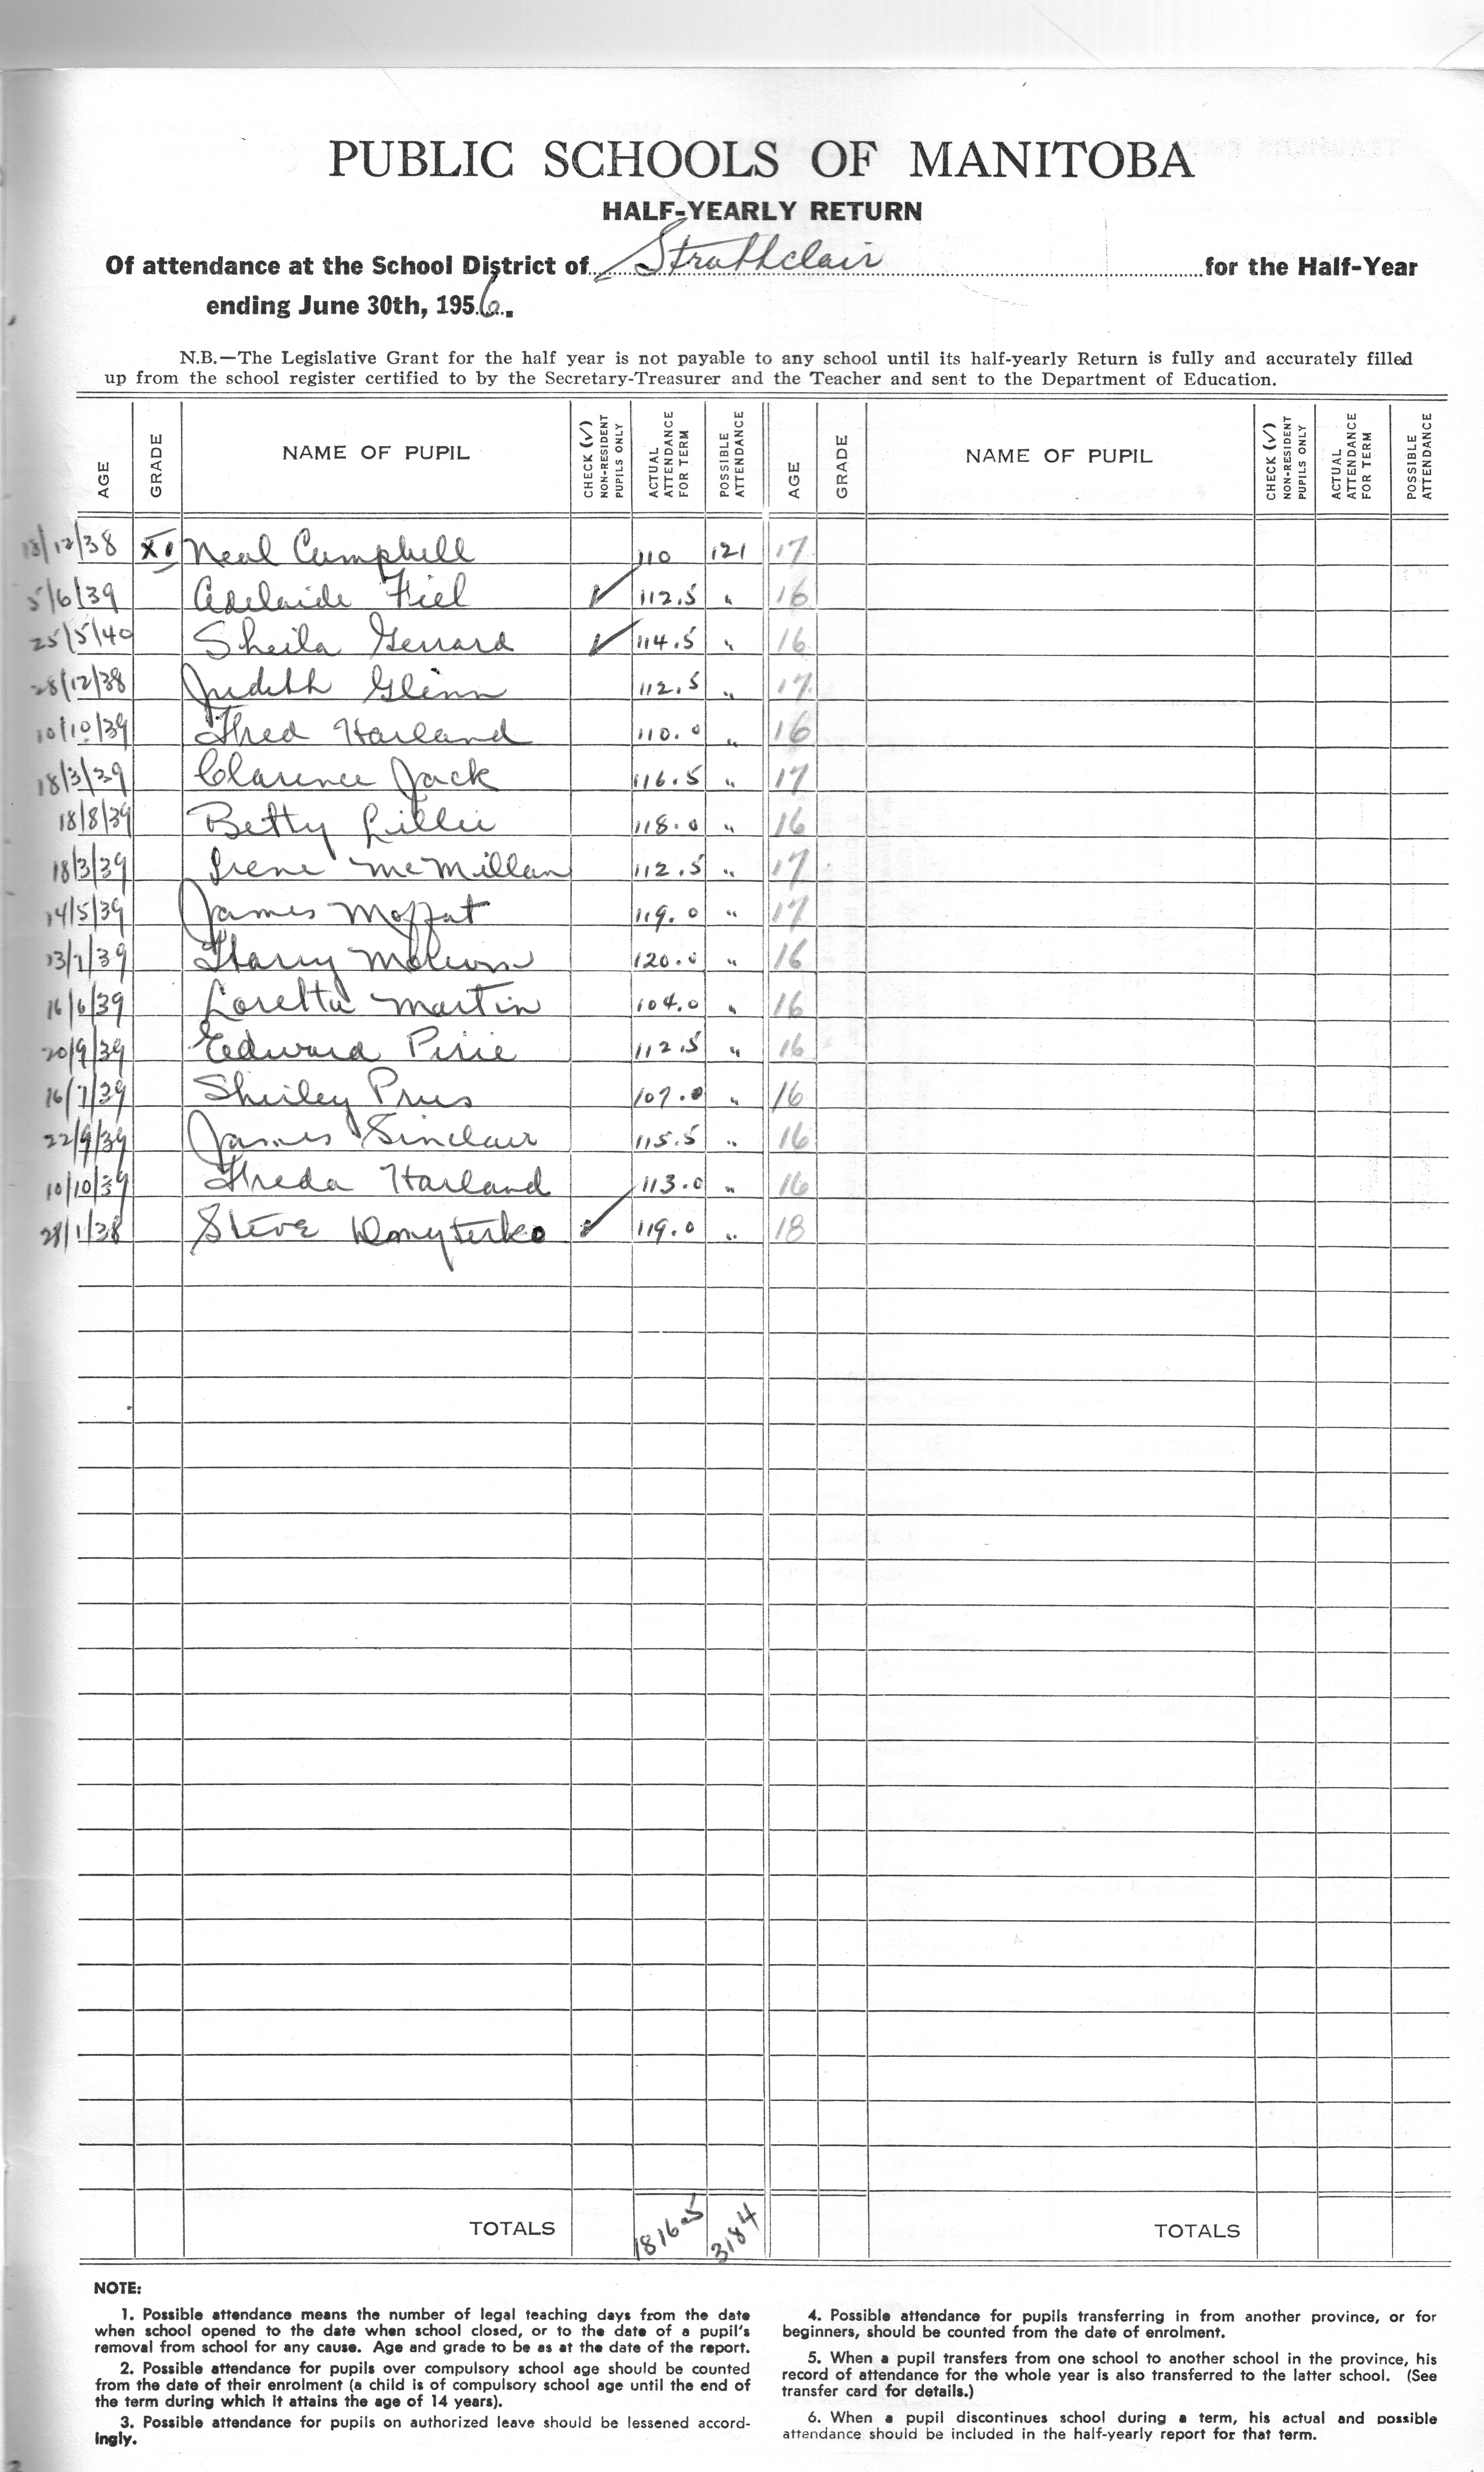 PUBLIC SCHOOLS OF MANITOBA
HALF-YEARLY RETURN
Of attendance at the School District of Strathclair for the Half-Year
ending June 30th, 1956.
N.B.—The Legislative Grant for the half year is not payable to any school until its half-yearly Return is fully and accurately filled
up from the school register certified to by the Secretary-Treasurer and the Teacher and sent to the Department of Education.
AGE GRADE NAME OF PUPIL CHECK (✓) NON-RESIDENT PUPILS ONLY ACTUAL ATTENDANCE FOR TERM POSSIBLE ATTENDANCE AGE GRADE NAME OF PUPIL CHECK (✓) NON-RESIDENT PUPILS ONLY ACTUAL ATTENDANCE FOR TERM POSSIBLE ATTENDANCE
13/12/38 XI Neal Campbell 110 121 17
5/6/39 Adelaide Fiel ✓ 112.5 " 16
25/5/40 Sheila Gerrard ✓ 114.5 " 16
28/12/38 Judith Glinn 112.5 " 17
10/10/39 Fred Harland 110.0 " 16
18/3/39 Clarence Jack 116.5 " 17
18/8/39 Betty Lillie 118.0 " 16
18/3/39 Irene McMillan 112.5 " 17
14/5/39 James Moffat 119.0 " 17
13/7/39 Harry 120.0 " 16
16/6/39 Loretta Martin 104.0 " 16
20/9/39 Edward Pirie 112.5 " 16
16/7/39 Shirley 107.0 " 16
22/9/39 James Sinclair 115.5 " 16
10/10/39 Freda Harland 113.0 " 16
28/1/38 Steve ✓ 119.0 " 18
TOTALS 1816.5 3184 TOTALS
NOTE:
1. Possible attendance means the number of legal teaching days from the date
when school opened to the date when school closed, or to the date of a pupil's
removal from school for any cause. Age and grade to be as at the date of the report.
2. Possible attendance for pupils over compulsory school age should be counted
from the date of their enrolment (a child is of compulsory school age until the end of
the term during which it attains the age of 14 years).
3. Possible attendance for pupils on authorized leave should be lessened accord-
ingly.
4. Possible attendance for pupils transferring in from another province, or for
beginners, should be counted from the date of enrolment.
5. When a pupil transfers from one school to another school in the province, his
record of attendance for the whole year is also transferred to the latter school. (See
transfer card for details.)
6. When a pupil discontinues school during a term, his actual and possible
attendance should be included in the half-yearly report for that term.